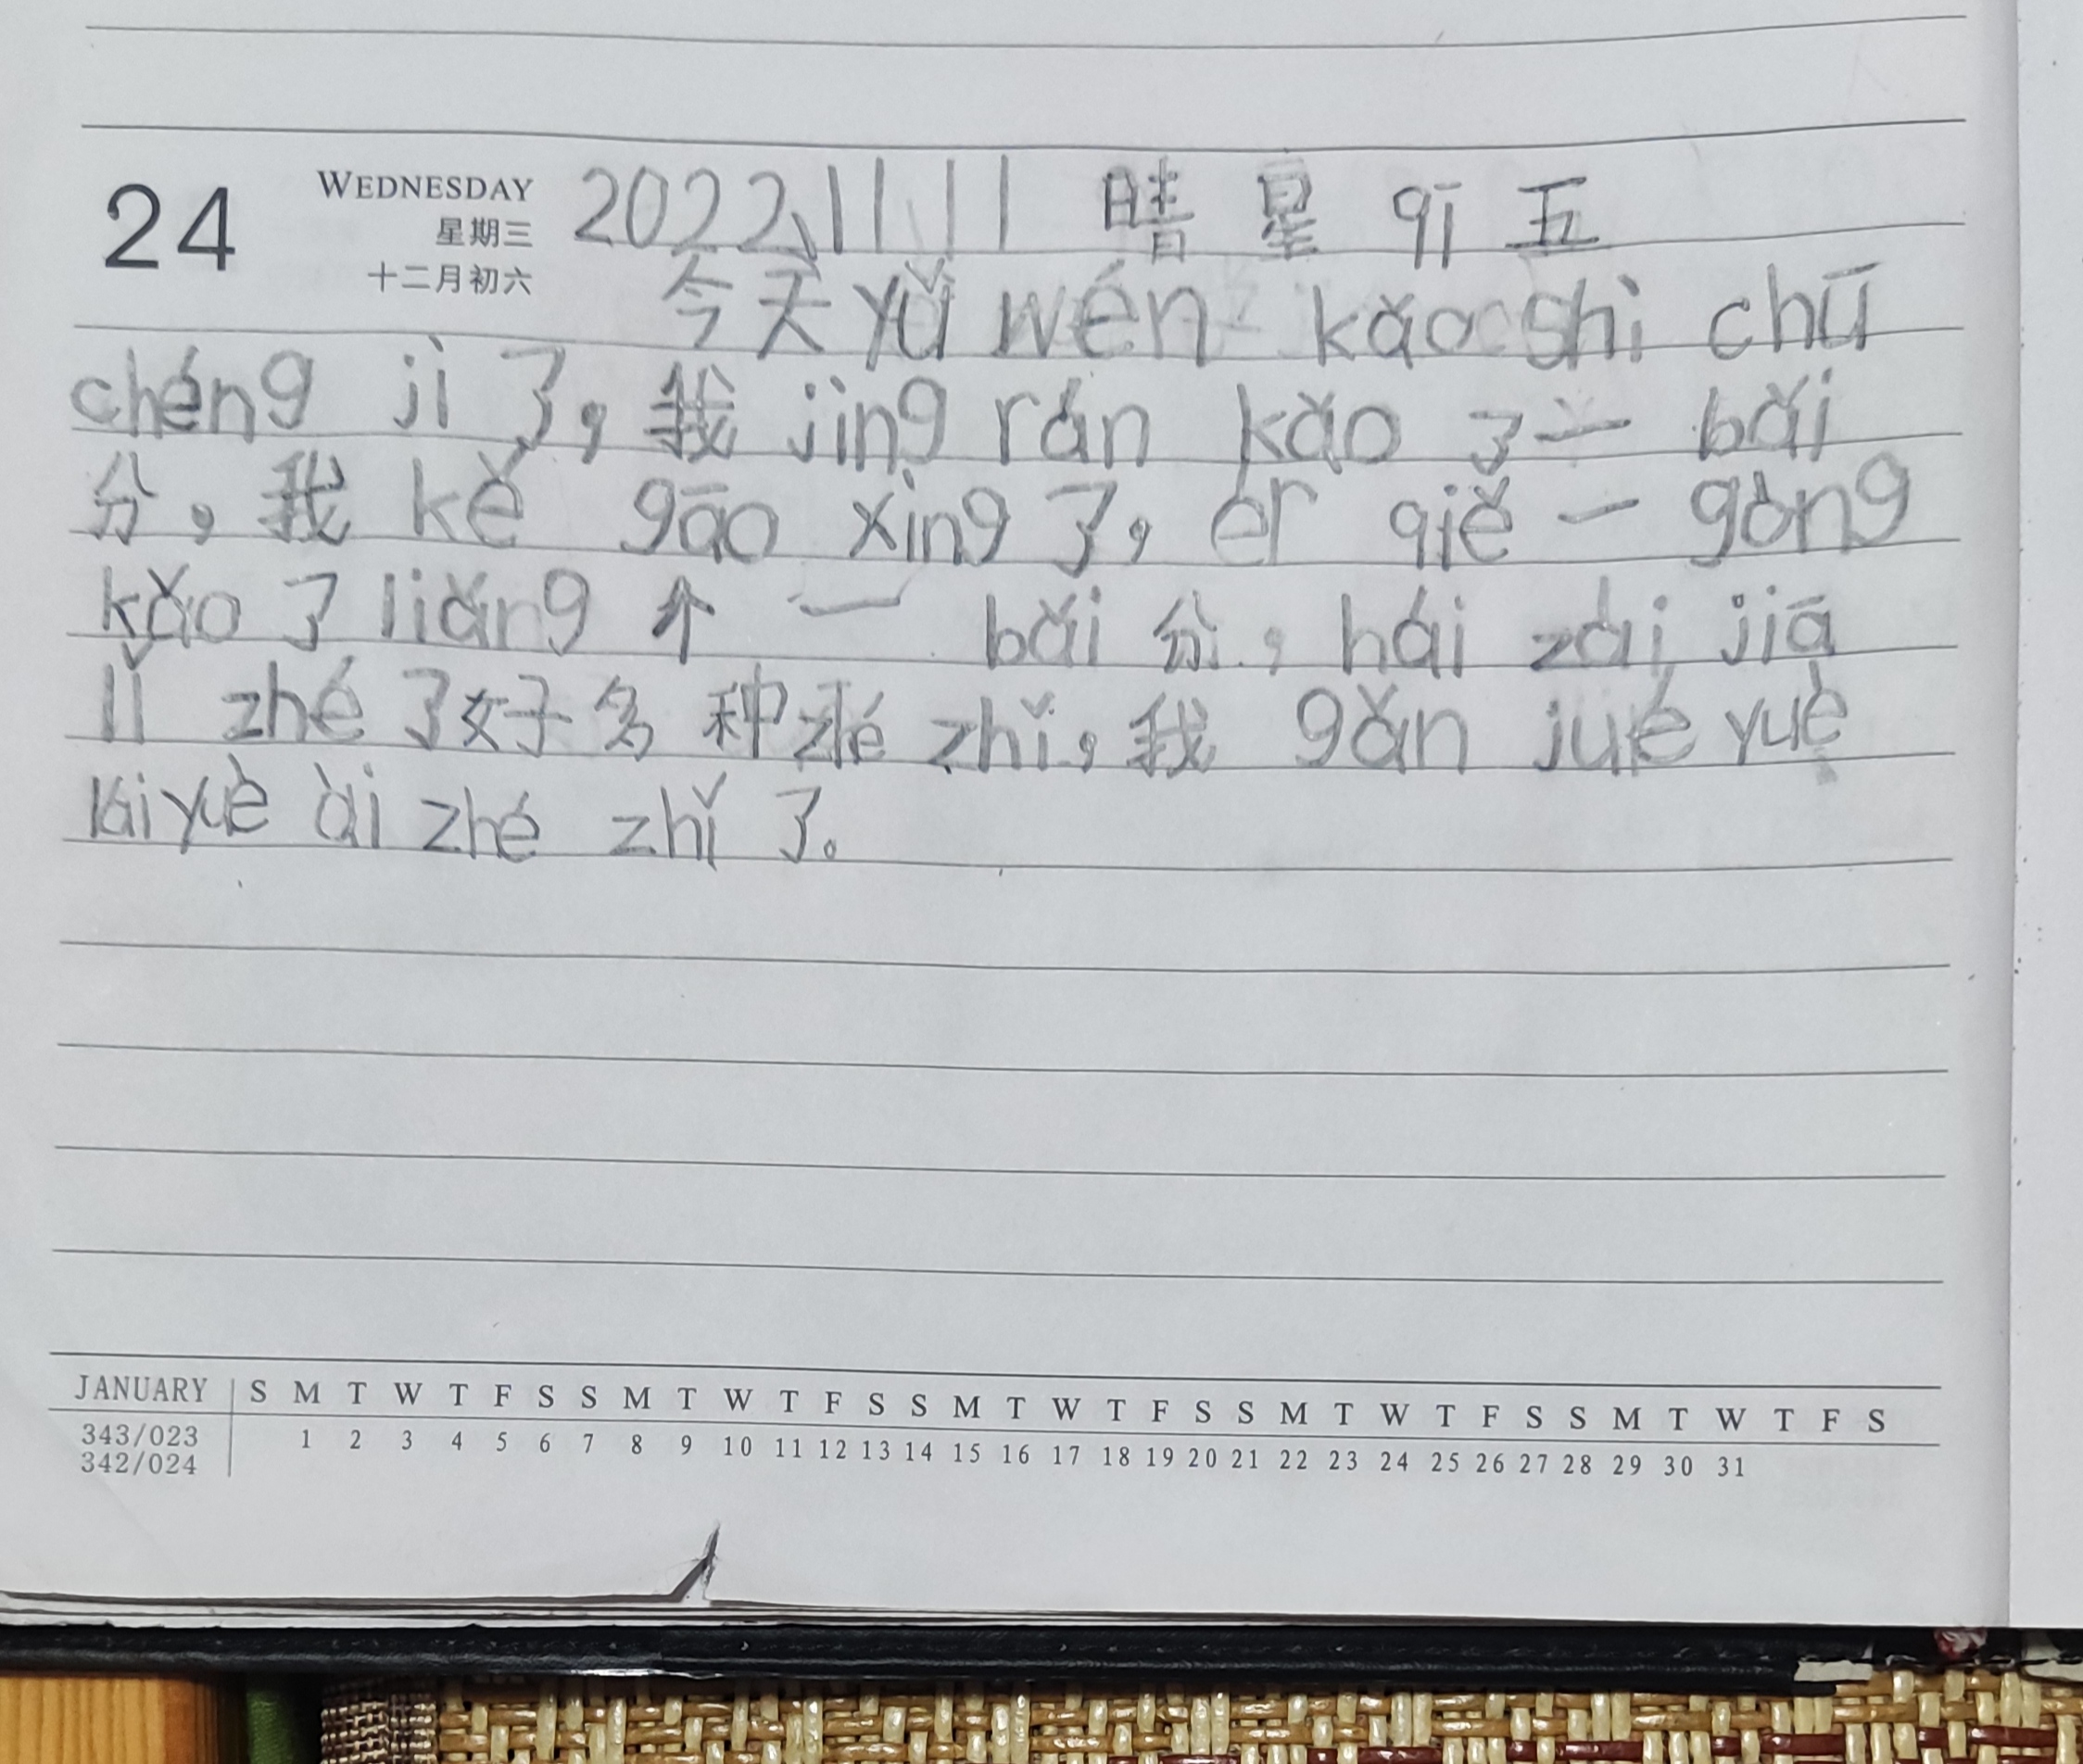 24 WEDNESDAY 2022、11、11 晴 星 qī 五
星期三
十二月初六
今天 yǔ wén kǎo shì chū
chéng jì 了，我 jìng rán kǎo 了一 bǎi
分，我 kě gāo xìng 了，ér qiě 一 gòng
kǎo 了 liǎng 个 一 bǎi 分，hái zài jiā
lǐ zhé 了好多 种 zhé zhǐ，我 gǎn jué yuè
lái yuè ài zhé zhǐ 了。
JANUARY S M T W T F S S M T W T F S S M T W T F S S M T W T F S S M T W T F S
343/023 1 2 3 4 5 6 7 8 9 10 11 12 13 14 15 16 17 18 19 20 21 22 23 24 25 26 27 28 29 30 31
342/024